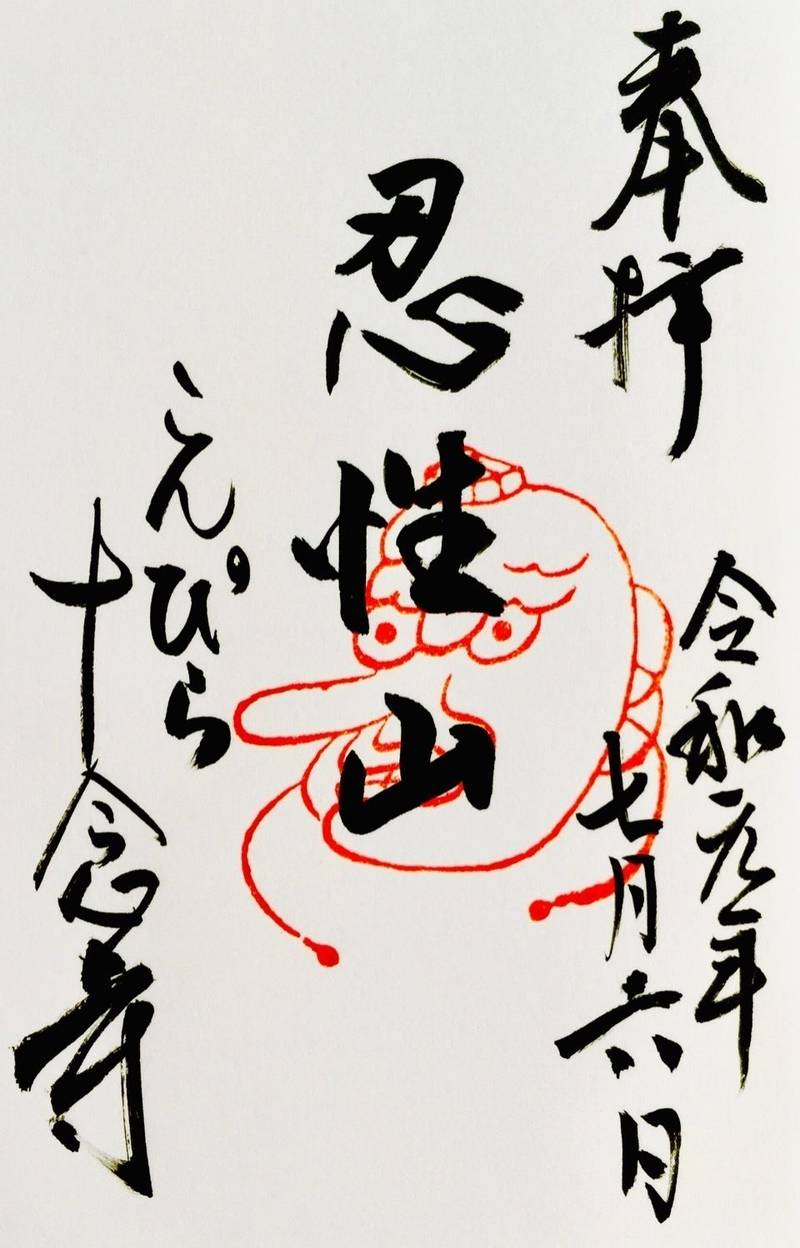 奉拝
令和元年
七月六日
忍性山
こんぴら
十念寺